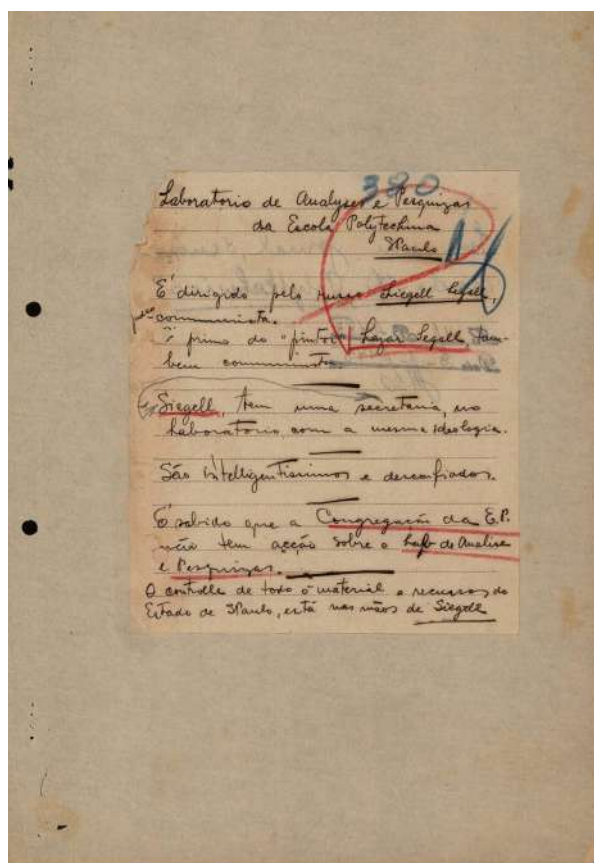 380
Laboratorio de Analyses e Pesquizas
da Escola Polytechina
SPaulo
E' dirigido pelo russo Siegell,
communista.
E' primo do "pintor" Lazar Segall, tam-
bem communista.
Siegell, tem uma secretaria, no
Laboratorio, com a mesma ideologia.
São intelligentissimos e desconfiados.
E' sabido que a Congregação da E.P.
não tem acção sobre o Lab. de Analise
e Pesquizas.
O controlle de todo o material e recursos do
Estado de SPaulo, está nas mãos de Siegell